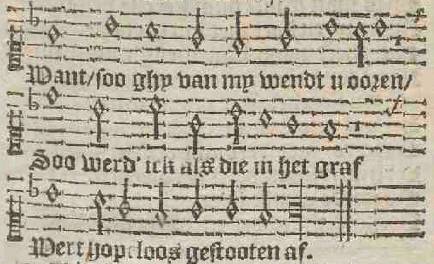 Want/soo ghy van my wendt u ooren/
Soo werd' ick als die in het graf
Wert hopeloos gestooten af.